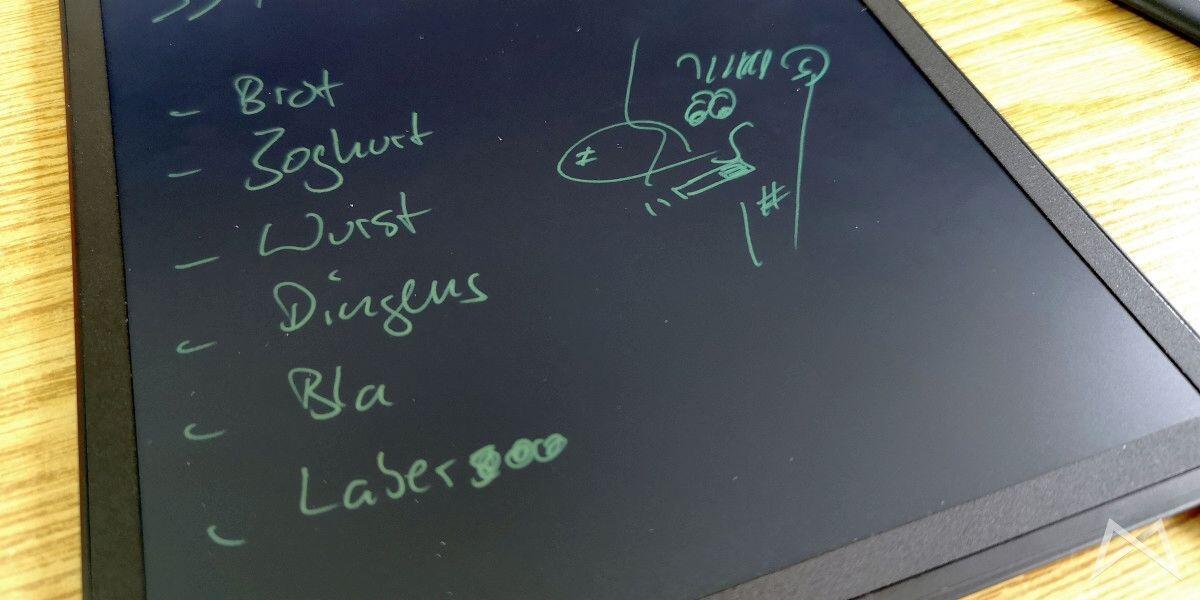 - Brot
- Joghurt
- Wurst
- Dingens
- Bla
- Laber
#